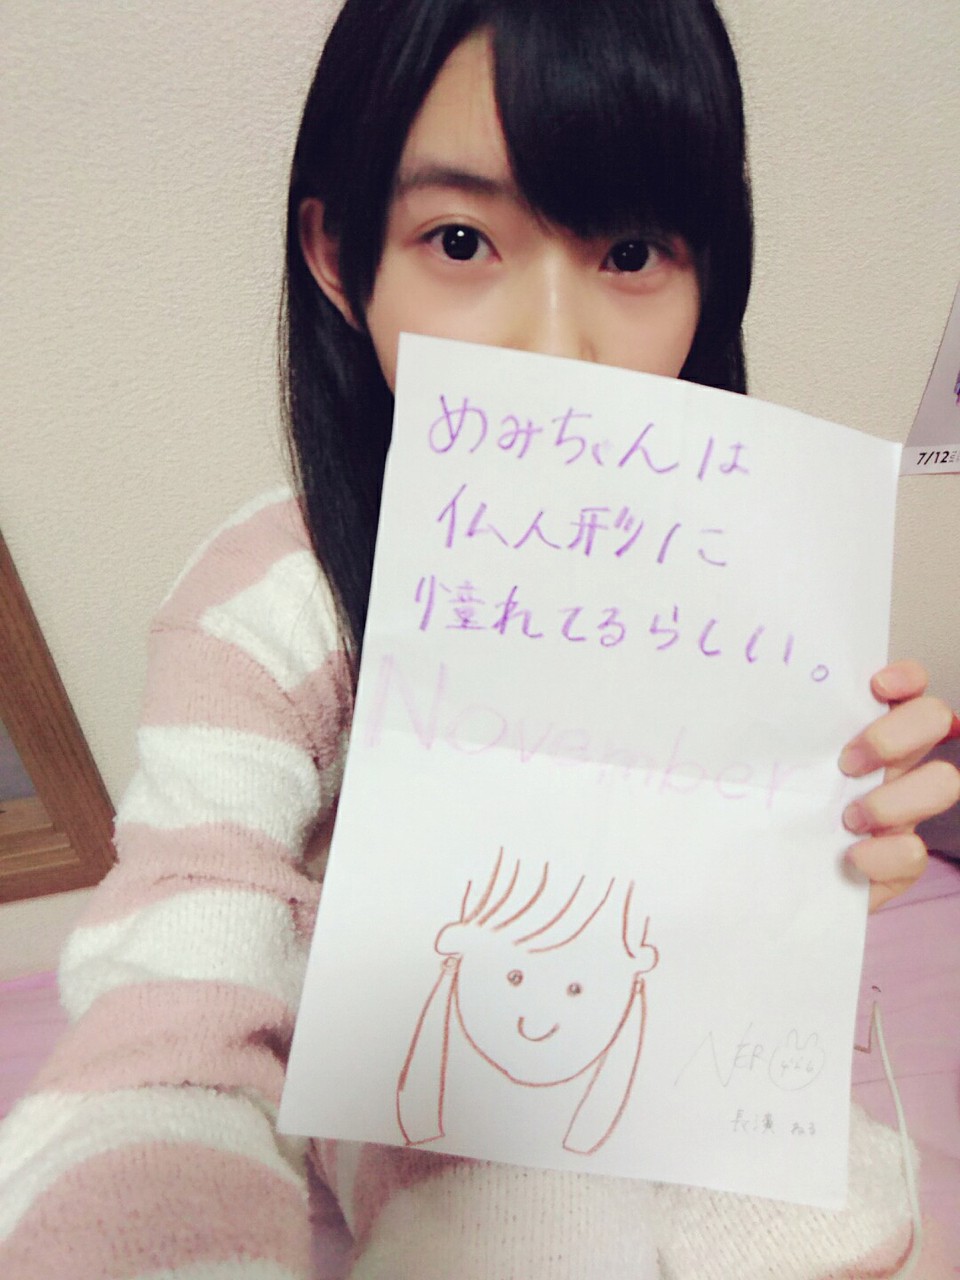 めみちゃんは
仏人形に
憧れてるらしい。
November
NERU
長濱 ねる
7/12